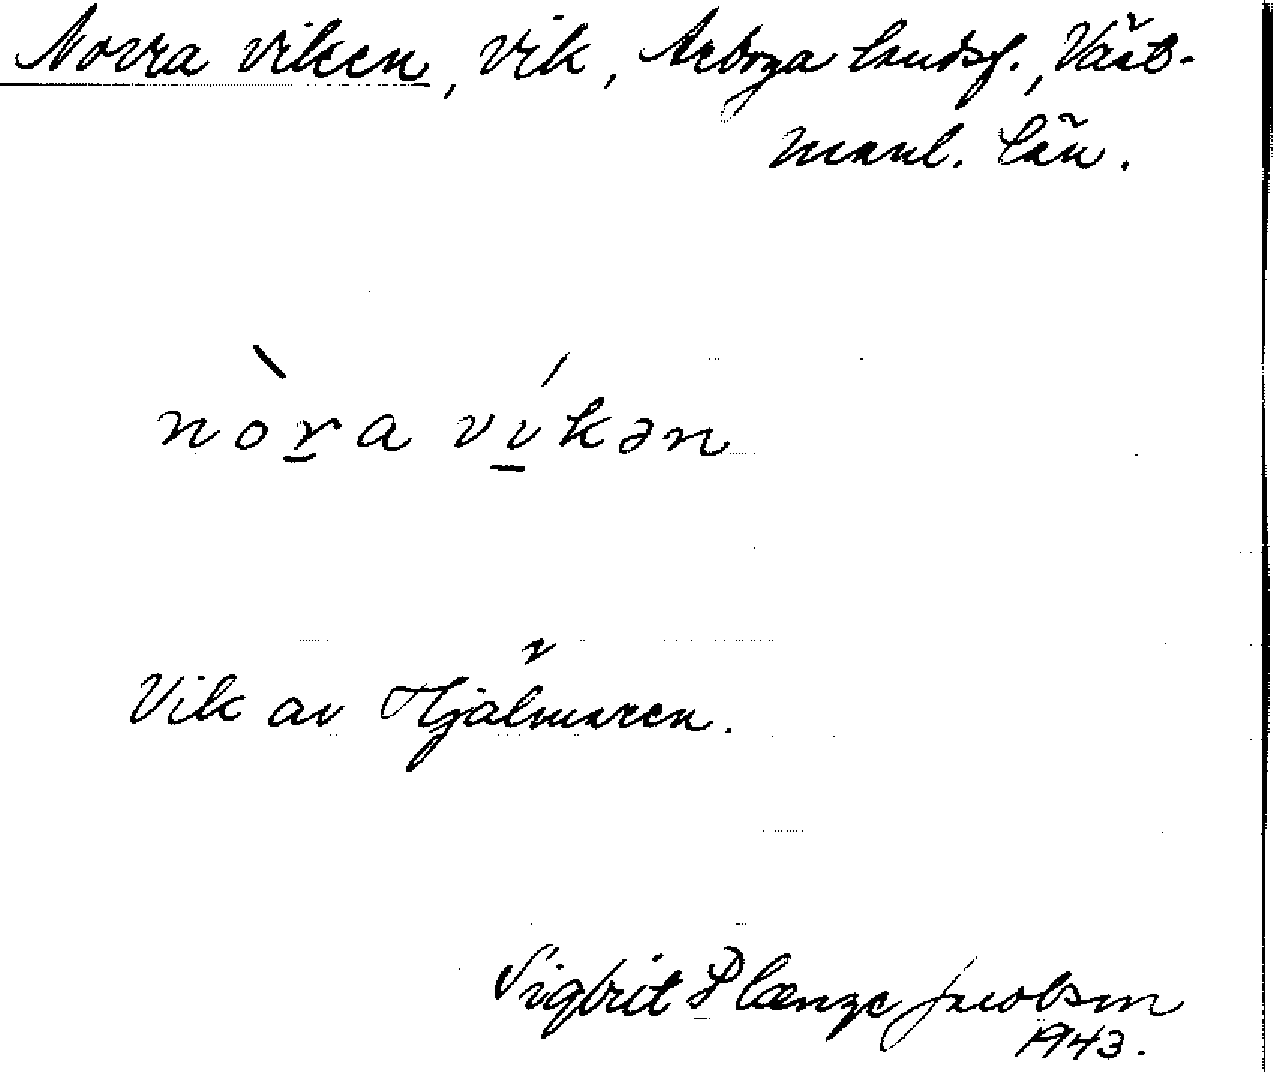 Norra viken, vik, Arboga landsf., Väst-
manl. län.
nòra víkən
Vik av Hjälmaren.
Sigbrit Plænge Jacobson
1943.